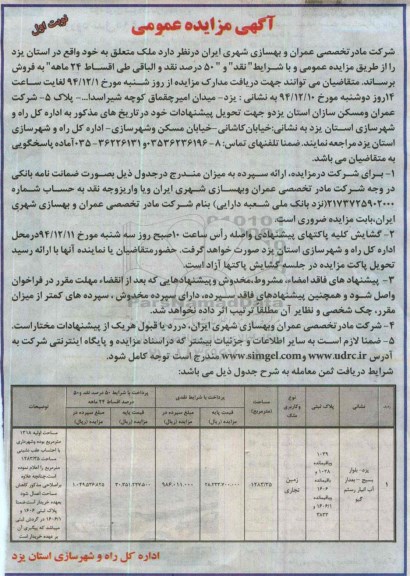 آگهی مزایده عمومی
نوبت اول
شرکت مادر تخصصی عمران و بهسازی شهری ایران در نظر دارد ملک متعلق به خود واقع در استان یزد
را از طریق مزایده عمومی و با شرایط "نقد" و " ۵۰ درصد نقد و الباقی طی اقساط ۲۴ ماهه" به فروش
برساند. متقاضیان می توانند جهت دریافت مدارک مزایده از روز شنبه مورخ ۹۴/۱۲/۱ لغایت ساعت
۱۴روز دوشنبه مورخ ۹۴/۱۲/۱۰ به نشانی : یزد- میدان امیرچقماق کوچه شیراسدا...- پلاک ۵- شرکت
عمران ومسکن سازان استان یزدو جهت تحویل پیشنهادات خود در تاریخ های مذکور به اداره کل راه و
شهرسازی استان یزد به نشانی:خیابان کاشانی-خیابان مسکن وشهرسازی- اداره کل راه و شهرسازی
استان یزد مراجعه نمایند. ضمنا تلفنهای تماس: ۸-۰۳۵۳۶۲۳۶۱۹۶و ۳۶۲۲۶۱۳۱-۰۳۵آماده پاسخگویی
به متقاضیان می باشد.
۱- برای شرکت درمزایده، ارائه سپرده به میزان مندرج درجدول ذیل بصورت ضمانت نامه بانکی
در وجه شرکت مادر تخصصی عمران وبهسازی شهری ایران ویا واریزوجه نقد به حساب شماره
۲۱۷۳۷۲۵۹۰۲۰۰۰(نزد بانک ملی شعبه دارایی) بنام شرکت مادر تخصصی عمران و بهسازی شهری
ایران،بابت مزایده ضروری است.
۲- گشایش کلیه پاکتهای پیشنهادی واصله رأس ساعت ۱۰صبح روز سه شنبه مورخ ۹۴/۱۲/۱۱درمحل
اداره کل راه و شهرسازی استان یزد صورت خواهد گرفت. حضورمتقاضیان یا نماینده آنها با ارائه رسید
تحویل پاکت مزایده در جلسه گشایش پاکتها آزاد است.
۳- پیشنهاد های فاقد امضاء، مشروط،مخدوش وپیشنهادهایی که بعد از انقضاء مهلت مقرر در فراخوان
واصل شود و همچنین پیشنهادهای فاقد سپرده، دارای سپرده مخدوش ، سپرده های کمتر از میزان
مقرر، چک شخصی و نظایر آن مطلقا ترتیب اثر داده نخواهد شد.
۴- شرکت مادر تخصصی عمران وبهسازی شهری ایران، دررد یا قبول هریک از پیشنهادات مختاراست.
۵- ضمنا لازم است به سایر اطلاعات و جزئیات بیشتر که دراسناد مزایده و پایگاه اینترنتی شرکت به
آدرس www.udrc.ir و www.simgel.com مندرج است توجه کامل شود.
شرایط دریافت ثمن معامله به شرح جدول ذیل می باشد:
نشانی
پلاک ثبتی
نوع وکاربری ملک
مساحت (مترمربع)
پرداخت با شرایط نقدی
پرداخت با شرایط ۵۰ درصد نقد و۵۰ درصد اقساط ۲۴ ماهه
توضیحات
قیمت پایه مزایده (ریال)
مبلغ سپرده در مزایده (ریال)
قیمت پایه مزایده (ریال)
مبلغ سپرده در مزایده (ریال)
۱
زمین تجاری
۱۲۸۳/۳۵
اداره کل راه و شهرسازی استان یزد